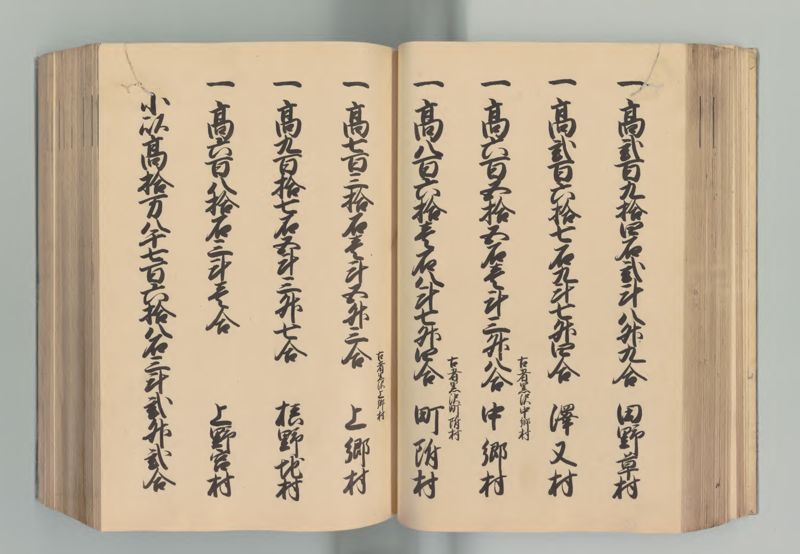 一高弐百九拾四石弐斗八升九合 田野草村
一高弐百六拾七石九斗七升四合 澤又村
一高六百五拾五石壱斗三升八合 中郷村
古者黒沢中郷村
一高八百六拾壱石八斗七升四合 町附村
古者黒沢町附村
一高七百三拾石壱斗五升三合 上郷村
古者黒沢上郷村
一高九百拾七石五斗三升七合 槙野地村
一高六百八拾石三斗壱合 上野宮村
小以高拾万八千七百六拾八石三斗弐升弐合